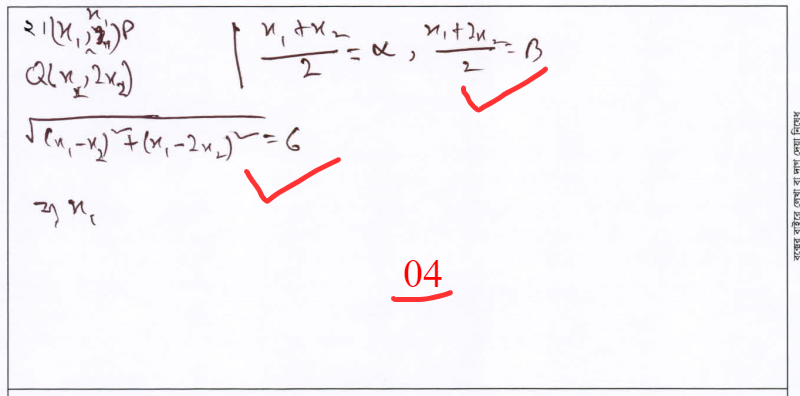 ২। (x₁, x₁) P
Q(x₂, 2x₂)
(x₁ + x₂)/2 = α, (x₁ + 2x₂)/2 = β
√((x₁ - x₂)² + (x₁ - 2x₂)²) = 6
⇒ x₁
04
বক্সের বাইরে লেখা বা দাগ দেয়া নিষেধ